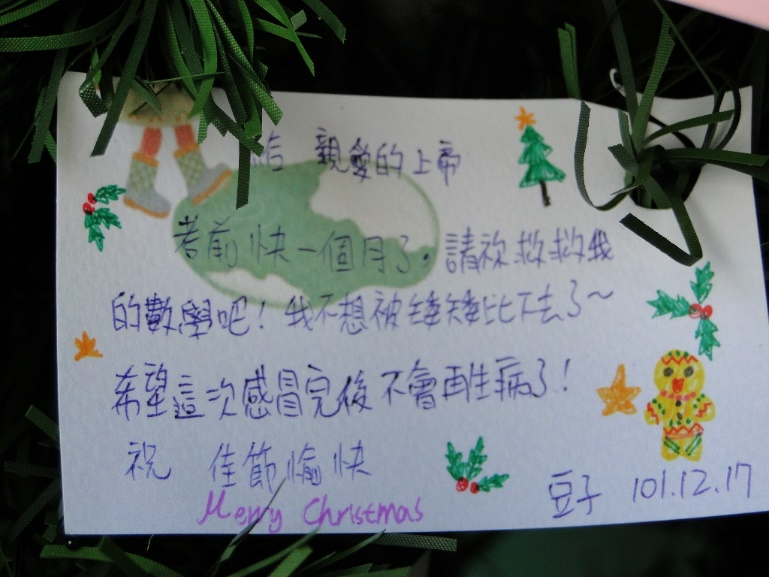 給 親愛的上帝
考前快一個月了。請祢救救我
的數學吧！我不想被矮矮比下去了～
希望這次感冒完後不會再生病了！
祝 佳節愉快
Merry Christmas
豆子 101.12.17